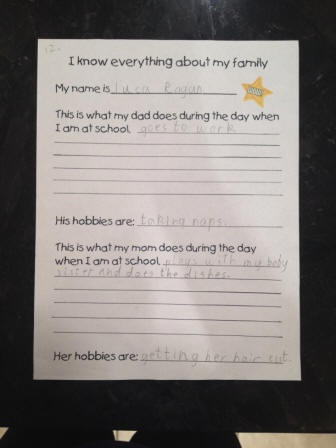 I know everything about my family
My name is luca Rogan
WOW
This is what my dad does during the day when
I am at school. goes to work
His hobbies are: taking naps.
This is what my mom does during the day
when I am at school. plays with my baby
sister and does the dishes.
Her hobbies are: getting her hair cut.